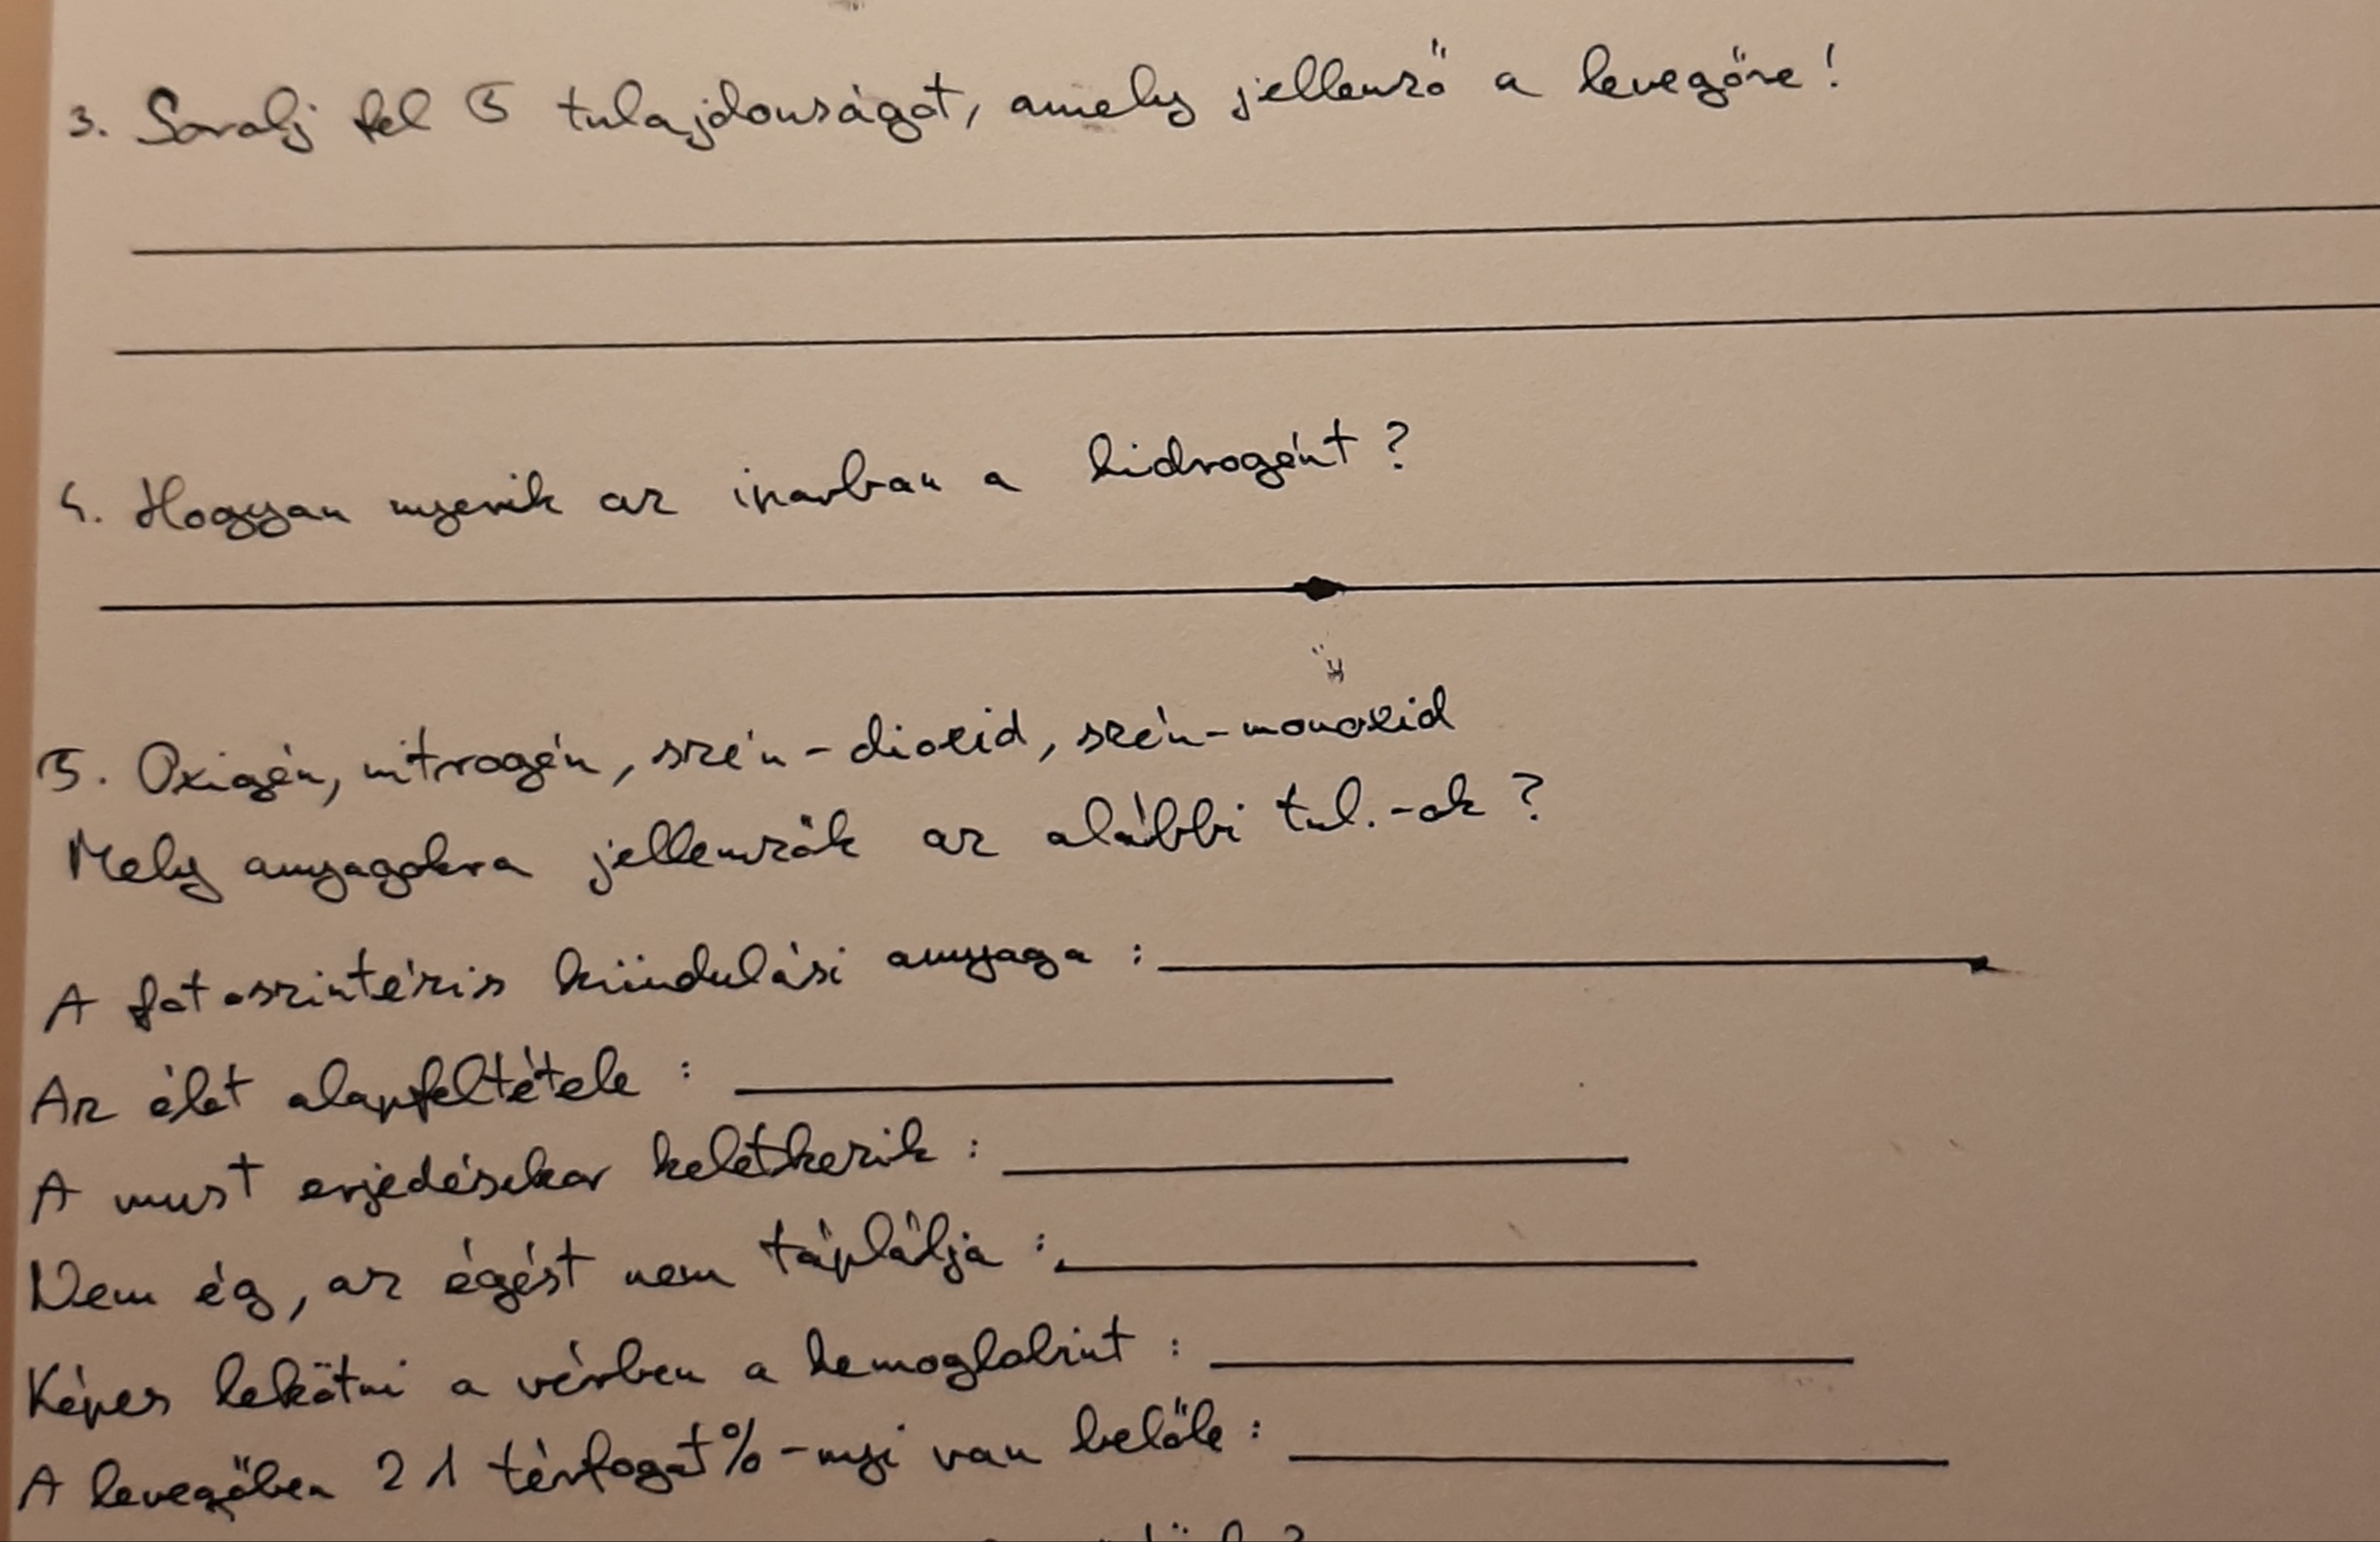 3. Sorolj fel 5 tulajdonságot, amely jellemző a levegőre!
4. Hogyan nyerik az iparban a hidrogént?
5. Oxigén, nitrogén, szén-dioxid, szén-monoxid
Mely anyagokra jellemzők az alábbi tul.-ok?
A fotoszintézis kiindulási anyaga:
Az élet alapfeltétele:
A must erjedésekor keletkezik:
Nem ég, az égést nem táplálja:
Képes lekötni a vérben a hemoglobint:
A levegőben 21 térfogat%-nyi van belőle: